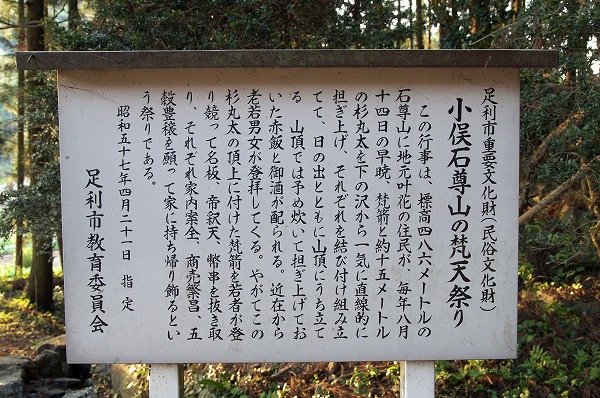 足利市重要文化財（民俗文化財）
小俣石尊山の梵天祭り
この行事は、標高四八六メートルの
石尊山に地元叶花の住民が、毎年八月
十四日の早暁、梵箭と約十五メートル
の杉丸太を下の沢から一気に直線的に
担ぎ上げ、それぞれを結び付け組み立
てて、日の出とともに山頂にうち立て
る　山頂では予め炊いて担ぎ上げてお
いた赤飯と御酒が配られる。近在から
老若男女が登拝してくる。やがてこの
杉丸太の頂上に付けた梵箭を若者が登
り競って名板、帝釈天、幣串を抜き取
り、それぞれ家内案全、商売繁昌、五
穀豊穣を願って家に持ち帰り飾るとい
う祭りである。
昭和五十七年四月二十一日　指定
足利市教育委員会